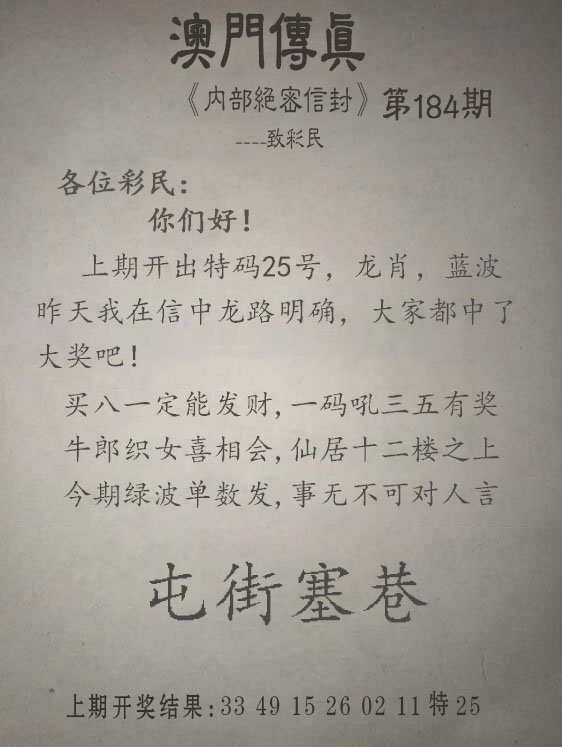 澳門傳真
《内部絕密信封》第184期
----致彩民
各位彩民：
你们好！
上期开出特码25号，龙肖，蓝波
昨天我在信中龙路明确，大家都中了
大奖吧！
买八一定能发财,一码吼三五有奖
牛郎织女喜相会,仙居十二楼之上
今期绿波单数发,事无不可对人言
屯街塞巷
上期开奖结果:33 49 15 26 02 11特25